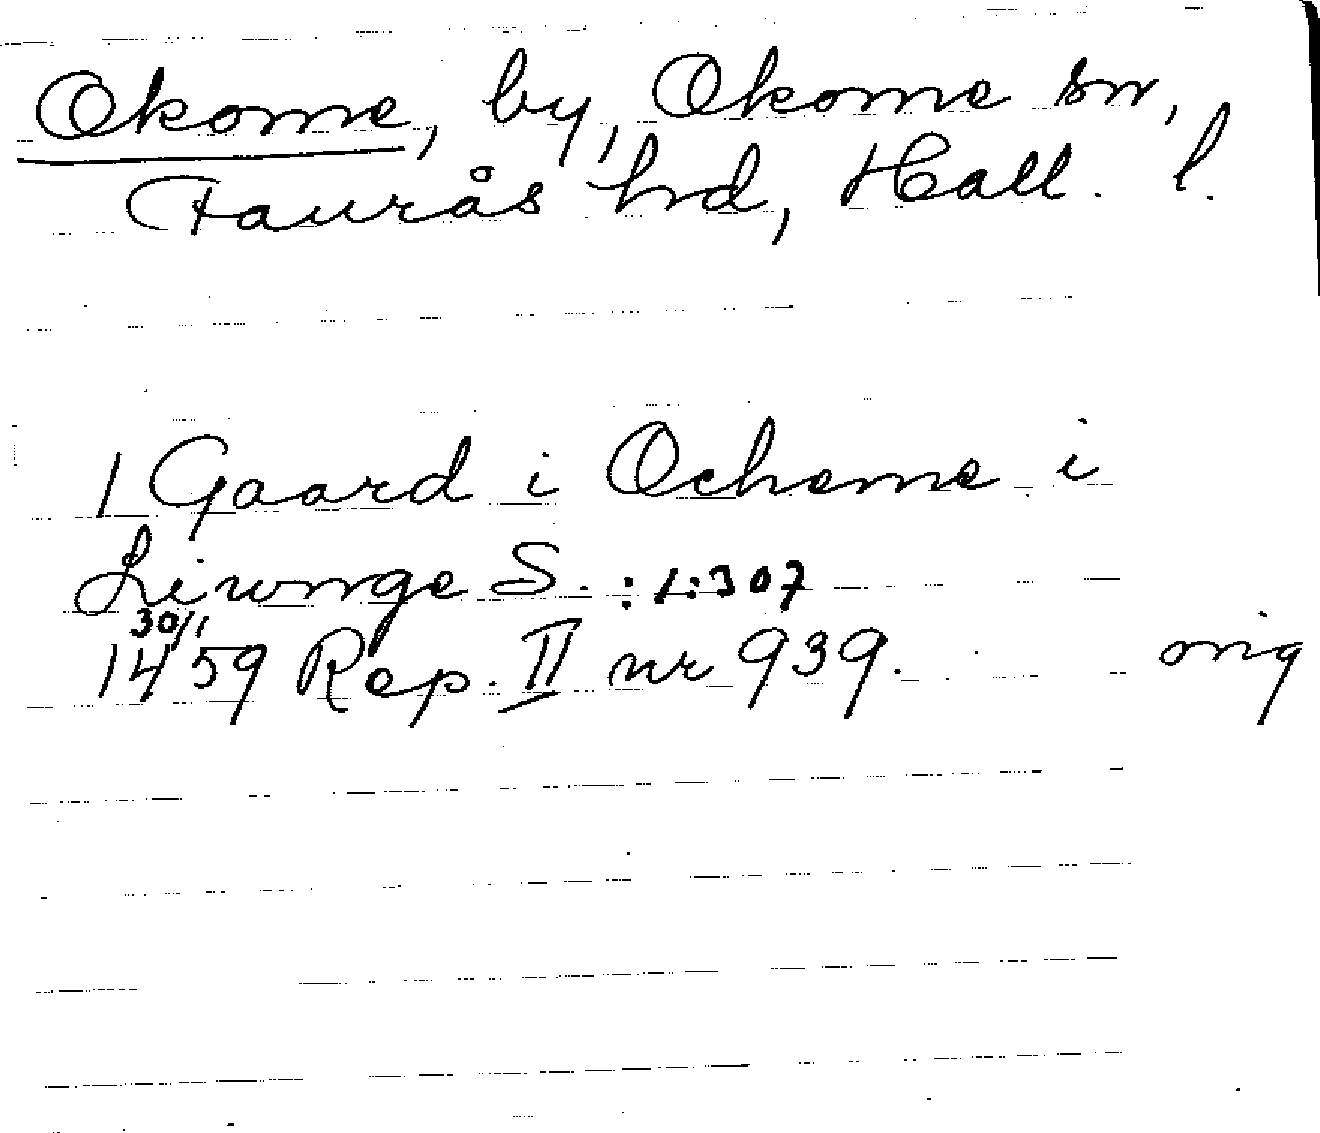 Okome, by, Okome sn,
Faurås hd, Hall. l.
1 Gaard i Ocheme i
Liwnge S. : 1:307
30/1
1459 Rep. II nr 939. orig